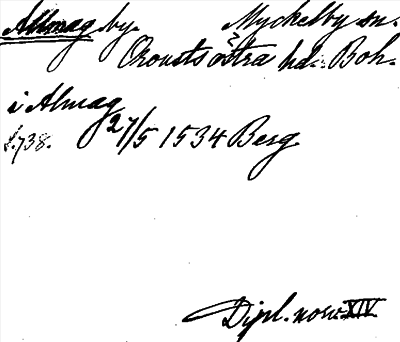 Allmag by. Myckelby sn.
Orousts östra hd. Boh.
i Almag
s. 738. 27/5 1534 Berg
Dipl. norv. XIV